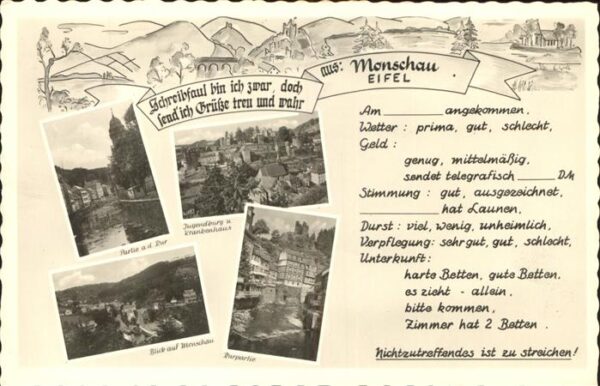 Schreibfaul bin ich zwar, doch
send ich Grüße treu und wahr
aus: Monschau
EIFEL
Am ______ angekommen,
Wetter: prima, gut, schlecht,
Geld:
genug, mittelmäßig,
sendet telegrafisch ______ DM
Stimmung: gut, ausgezeichnet,
______ hat Launen,
Durst: viel, wenig, unheimlich,
Verpflegung: sehr gut, gut, schlecht,
Unterkunft:
harte Betten, gute Betten,
es zieht - allein,
bitte kommen,
Zimmer hat 2 Betten.
Nichtzutreffendes ist zu streichen!
Partie a. d. Rur
Jugendburg u.
Krankenhaus
Blick auf Monschau
Rurpartie